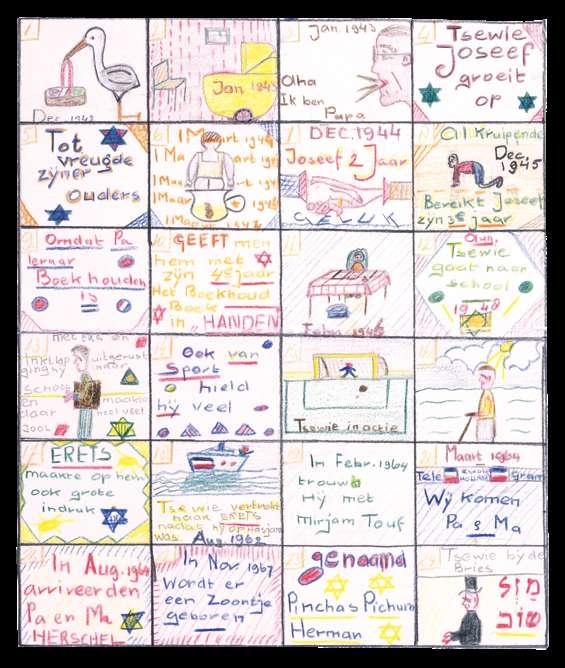 Dec. 1942
Jan 1943
Jan 1943
Oha
Ik ben
Papa
Tsewie
Joseef
groeit
op
Tot
vreugde
zyner
Ouders
1 Maart 1944
1 Maart 1944
1 Maart 1944
DEC. 1944
Joseef 2 Jaar
GELUK
Al Kruipende
Dec.
1945
Bereikt Joseef
zyn 3e jaar
Omdat Pa
leraar
Boekhouden
is
GEEFT men
hem met
zÿn 4e jaar
Het Boekhoud
Boek
in "HANDEN
Febr. 1948
Aug.
Tsewie
gaat naar
school
1948
Met tas en
inktlap uitgerust
ging hy naar
school
en maakte
daar heel veel
JOOL
Ook van
Sport
hield
hÿ veel
Tsewie in actie
ERETS
maakte op hem
ook grote
indruk
Tsewie vertrekt
naar ERETS
nadat hÿ op Hasjara
was. Aug. 1962
In Febr. 1964
trouwt
Hÿ met
Mirjam Touf
Maart 1964
Tele gram
Wÿ komen
Pa & Ma
In Aug. 1964
arriveerden
Pa en Ma
HERSCHEL
In Nov 1967
Wordt er
een Zoontje
geboren
genaamd
Pinchas Pichum
Herman
Tsewie by de
Bries
מזל
טוב